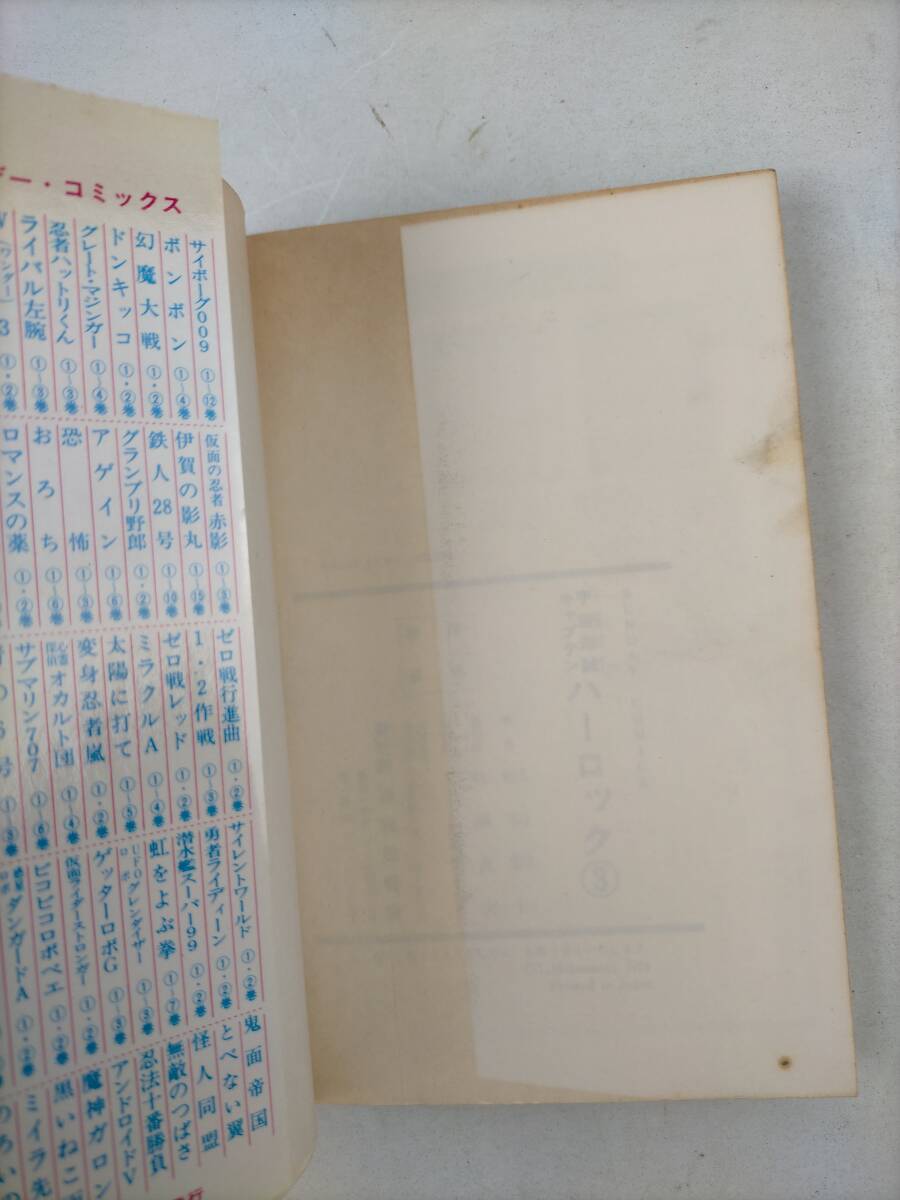 デー・コミックス
サイボーグ009 ①〜⑫巻
ボンボン ①〜④巻
幻魔大戦 ①・②巻
ドンキッコ ①・②巻
グレート・マジンガー ①〜④巻
忍者ハットリくん ①〜③巻
ライバル左腕 ①〜③巻
W（ワンダー）3 ①・②巻
仮面の忍者 赤影 ①〜③巻
伊賀の影丸 ①〜⑮巻
鉄人28号 ①〜⑩巻
グランプリ野郎 ①・②巻
アゲイン ①〜⑥巻
恐怖 ①〜③巻
おろち ①〜⑥巻
ロマンスの薬 ①・②巻
ゼロ戦行進曲 ①・②巻
1・2作戦 ①〜③巻
ゼロ戦レッド ①・②巻
ミラクルA ①〜④巻
太陽に打て ①〜⑤巻
変身忍者嵐 ①・②巻
心霊探偵オカルト団 ①〜④巻
サブマリン707 ①〜⑥巻
の6号 ①〜③巻
サイレントワールド ①・②巻
勇者ライディーン ①・②巻
潜水艦スーパー99 ①・②巻
虹をよぶ拳 ①〜⑦巻
UFOロボグレンダイザー ①〜③巻
ゲッターロボG ①〜③巻
仮面ライダーストロンガー ①・②巻
ピコピコロボペエ ①・②巻
惑星ロボダンガードA ①・②巻
鬼面帝国
とべない翼
怪人同盟
無敵のつばさ
忍法十番勝負
アンドロイドV
魔神ガロン
黒いねこ
ミイラ先
のろいの
行
ハーロック③